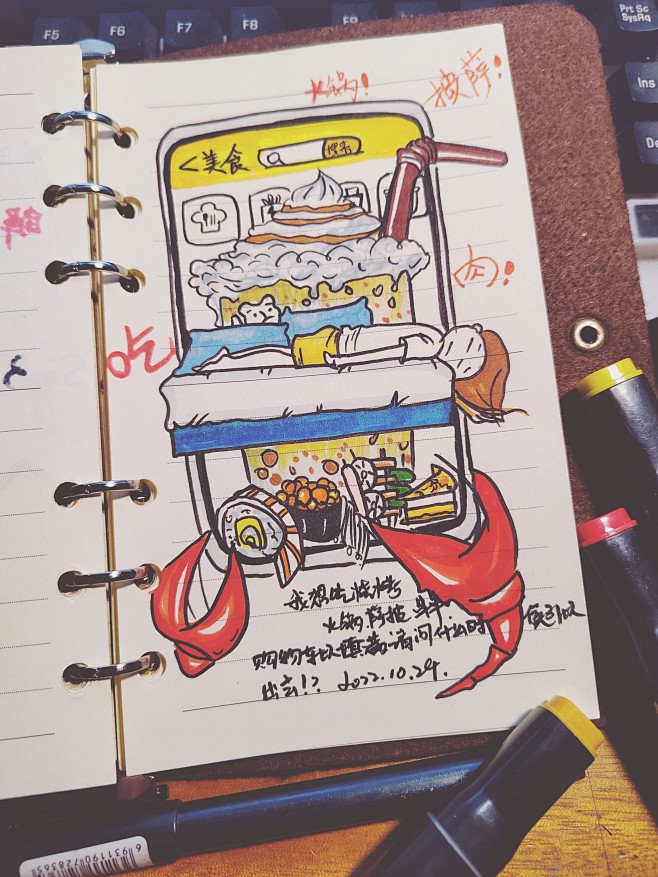 F5
F6
F7
F8
F9
Prt Sc
SysRq
Ins
De
火锅!
披萨!
<美食
搜索
肉!
吃
我想吃烧烤
火锅 萨披
购物车 请问什么时
可以
出去!? 2022.10.24.
6 931190 728363